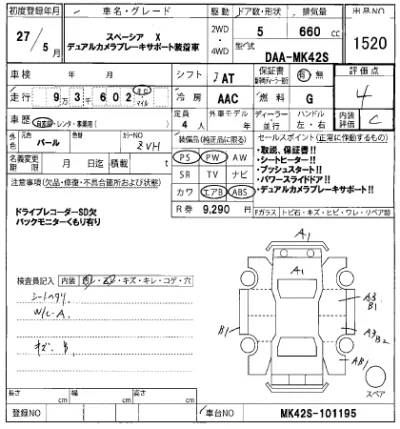 初度登録年月 車名・グレード 駆動 ドア数・形状 排気量 出品NO
27/5月 スペーシア X 2WD・4WD 5 660cc 1520
デュアルカメラブレーキサポート装着車 DAA-MK42S
車検 年 月 シフト AT 保証書 有 無 評価点
走行 93602 マイル 冷房 AAC 燃料 G 4
車歴 自家用・レンタ・事業用 定員 4人 外車モデル 年 ディーラー 並行 ハンドル 左・右 内装評価 C
外色 元色 パール 色替 カラーNO ZVH 装備品(純正品に限る) セールスポイント(正常に作動するもの)
名義変更期限 月 日迄 積載 t PS PW AW
・取説、保証書!!
・シートヒーター!!
・プッシュスタート!!
・パワースライドドア!!
・デュアルカメラブレーキサポート!!
注意事項(欠品・修復・不具合箇所および状態) SR TV ナビ
カワ エアB ABS
ドライブレコーダーSD欠 R券 9,290円 Fガラス トビ石・キズ・ヒビ・ワレ・リペア跡
バックモニターくもり有り
A1
A1
検査員記入 内装 キズ・キレ・コゲ・穴
W/C-A
A3
B1
B1
A3
B2
AB1
スペア
長さ cm 幅 cm 高さ cm
登録NO 車台NO MK42S-101195